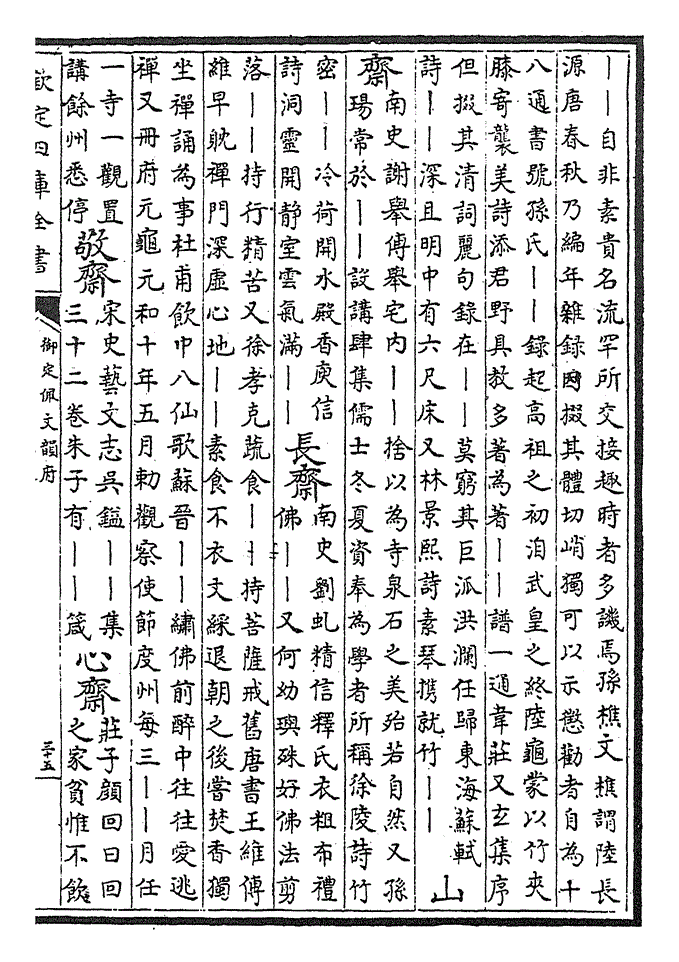 ——自非素貴名流罕所交接趣時者多譏焉孫樵文樵謂陸長
源唐春秋乃編年雜録因掇其體切峭獨可以示懲勸者自為十
八通書號孫氏——録起高祖之初洎武皇之終陸龜蒙以竹夾
膝寄襲美詩添君野具教多著為著——譜一通韋莊又玄集序
但掇其清詞麗句録在——莫窮其巨派洪瀾任歸東海蘇軾
詩——深且明中有六尺床又林景熙詩素琴攜就竹——
山
齋
南史謝舉傳舉宅内——捨以為寺泉石之美殆若自然又孫
瑒常於——設講肆集儒士冬夏資奉為學者所稱徐陵詩竹
密——冷荷開水殿香庾信
詩洞靈開静室雲氣滿——
長齋
南史劉虬精信釋氏衣粗布禮
佛——又何幼璵殊好佛法剪
落——持行精苦又徐孝克蔬食——持菩薩戒舊唐書王維傳
維早躭禪門深虛心地——素食不衣文綵退朝之後嘗焚香獨
坐禪誦為事杜甫飲中八仙歌蘇晉——繡佛前醉中往往愛逃
禪又冊府元龜元和十年五月勅觀察使節度州每三——月任
一寺一觀置
講餘州悉停
敬齋
宋史藝文志吳鎰——集
三十二卷朱子有——箴
心齋
莊子顔回曰回
之家貧惟不飲
欽定四庫全書
御定佩文韻府
三十五